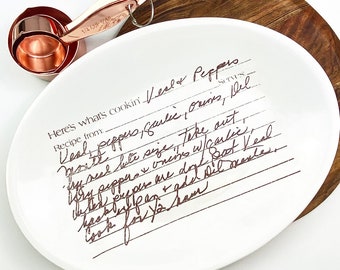 Here's what's cookin' Veal & Peppers
Recipe from Serves
Veal, peppers, garlic, onions, Del
Monte
fry veal bite size, take out,
fry peppers & onions w/ garlic,
until peppers are done. Put Veal
back in pan & add Del Monte,
cook for ½ hour